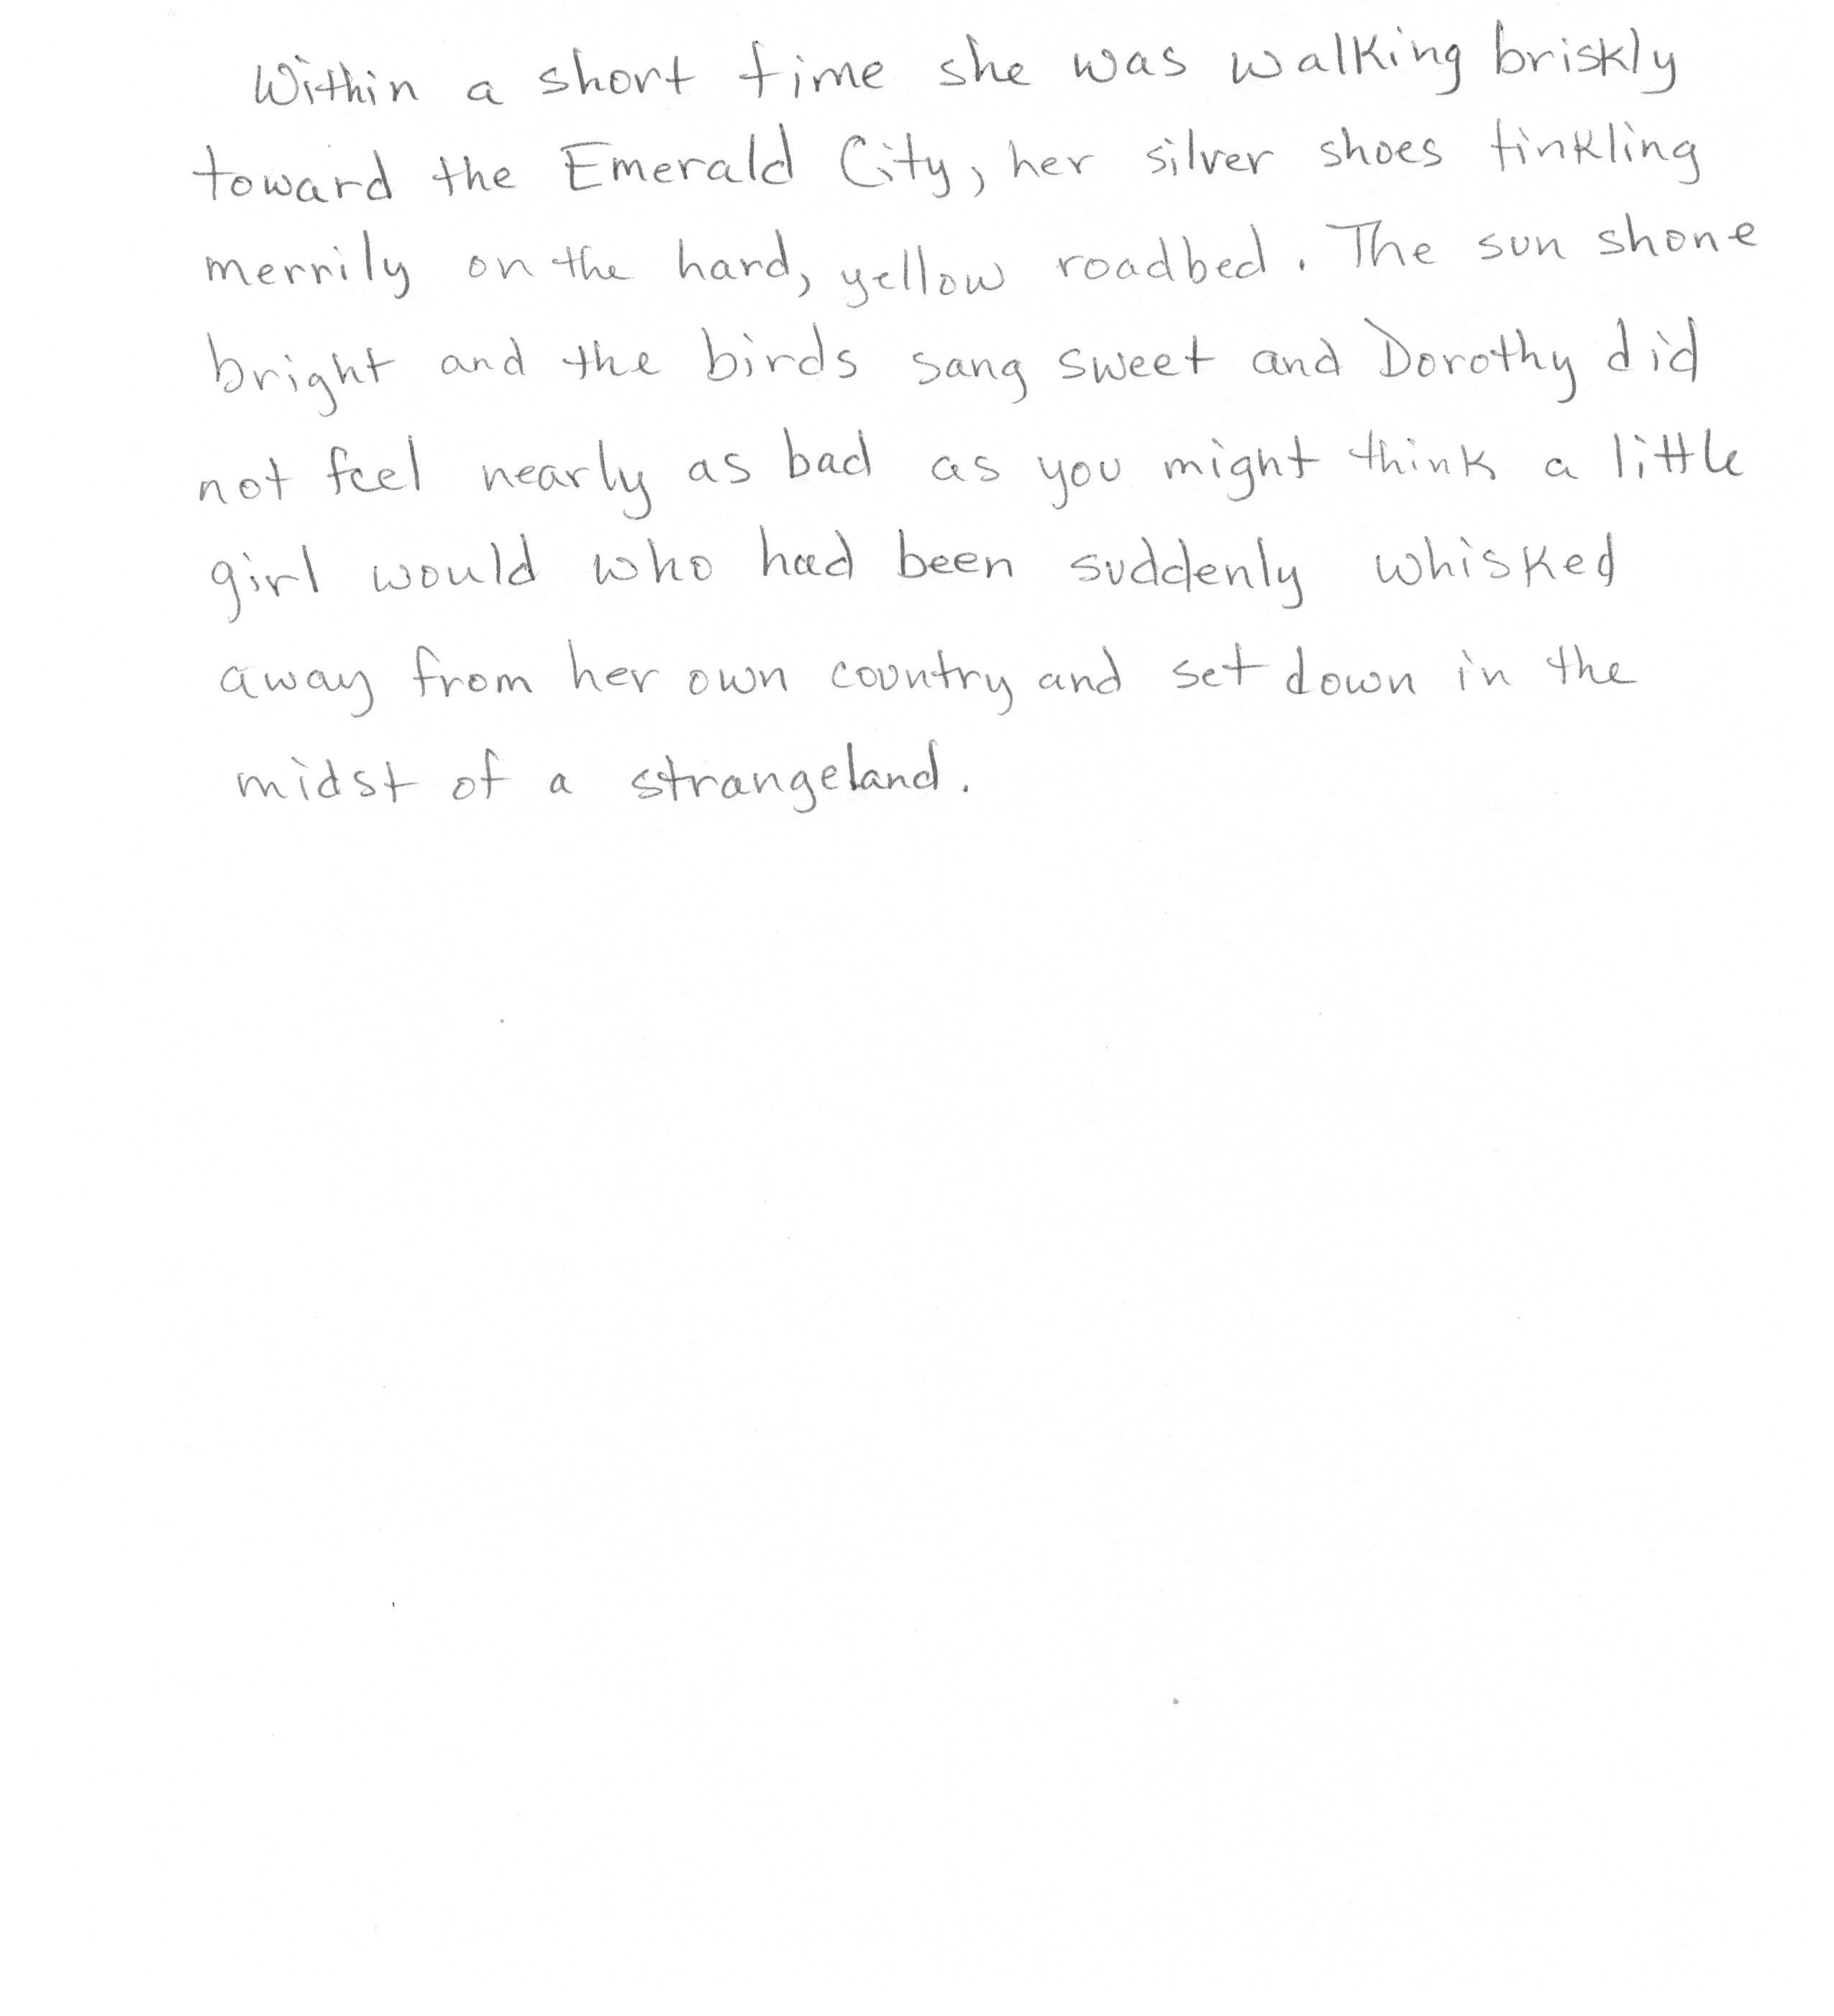 Within a short time she was walking briskly
toward the Emerald City, her silver shoes tinkling
merrily on the hard, yellow roadbed. The sun shone
bright and the birds sang sweet and Dorothy did
not feel nearly as bad as you might think a little
girl would who had been suddenly whisked
away from her own country and set down in the
midst of a strangeland.